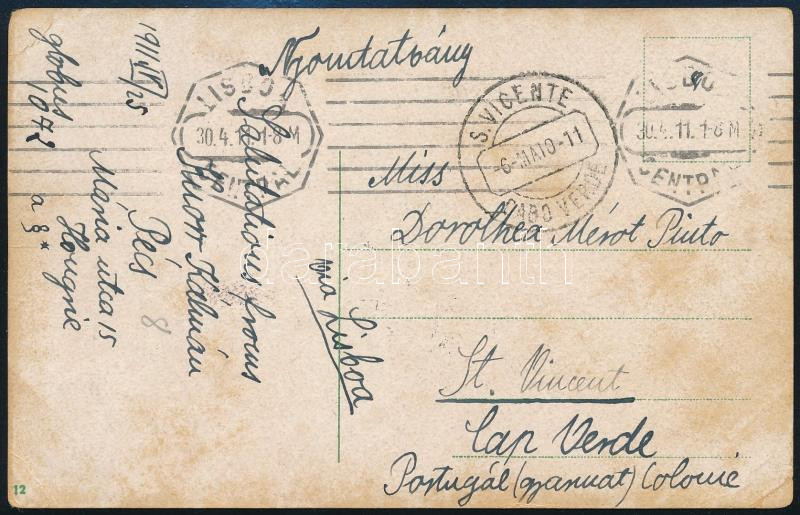 Nyomtatvány
1911 IV/25
globus
1072
a 8*
Salutations from
Kurorr Kálmán
Pécs 8
Mária utca 15
Hougrie
via Lisboa
LISBOA
30.4.11.1-8 M
CENTRAL
S. VICENTE
-6-MAIO-11
CABO VERDE
LISBOA
30.4.11.1-8 M
CENTRAL
Miss
Dorothea Mérot Pinto
St. Vincent
Cap Verde
Portugál (gyarmat) Colonie
12
darabanth